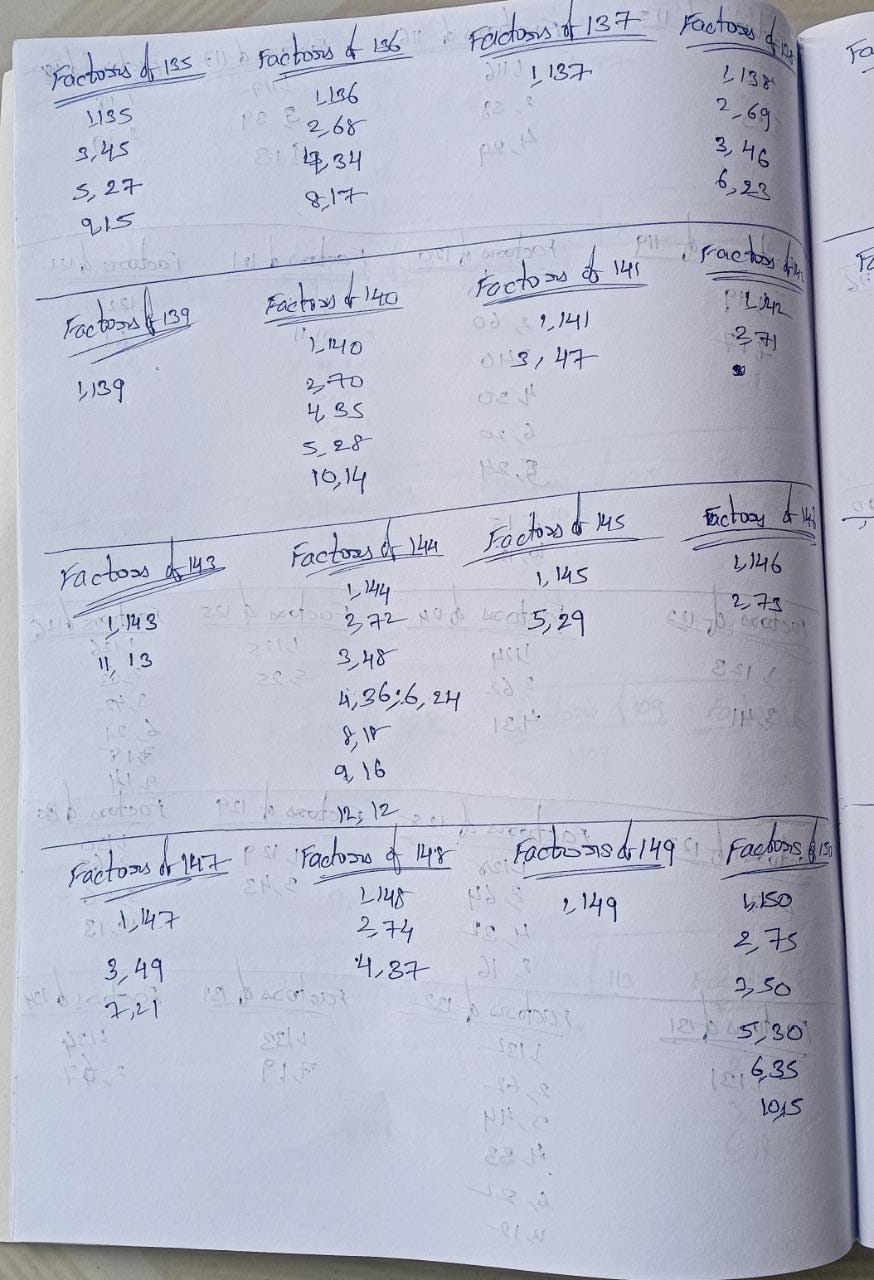 Factors of 135
1,135
3,45
5,27
9,15
Factors of 136
1,136
2,68
4,34
8,17
Factors of 137
1,137
Factors of 138
1,138
2,69
3,46
6,23
Factors of 139
1,139
Factors of 140
1,140
2,70
4,35
5,28
10,14
Factors of 141
1,141
3,47
Factors of 142
1,142
2,71
Factors of 143
1,143
11,13
Factors of 144
1,144
2,72
3,48
4,36;6,24
8,18
9,16
12,12
Factors of 145
1,145
5,29
Factors of 146
1,146
2,73
Factors of 147
1,147
3,49
7,21
Factors of 148
1,148
2,74
4,37
Factors of 149
1,149
Factors of 150
1,150
2,75
3,50
5,30
6,35
10,15
Fa
Fa